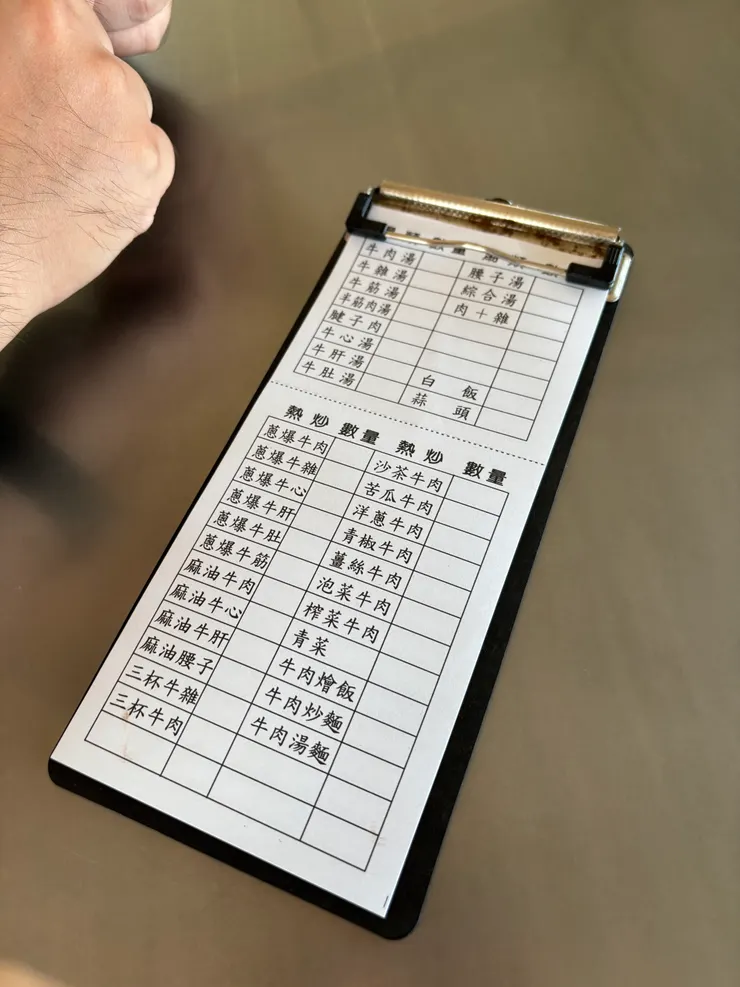 牛肉湯 腰子湯
牛雜湯 綜合湯
牛筋湯 肉+雜
半筋肉湯
腱子肉
牛心湯
牛肝湯 白飯
牛肚湯 蒜頭
熱炒 數量 熱炒 數量
蔥爆牛肉 沙茶牛肉
蔥爆牛雜 苦瓜牛肉
蔥爆牛心 洋蔥牛肉
蔥爆牛肝 青椒牛肉
蔥爆牛肚 薑絲牛肉
蔥爆牛筋 泡菜牛肉
麻油牛肉 榨菜牛肉
麻油牛心 青菜
麻油牛肝 牛肉燴飯
麻油腰子 牛肉炒麵
三杯牛雜 牛肉湯麵
三杯牛肉